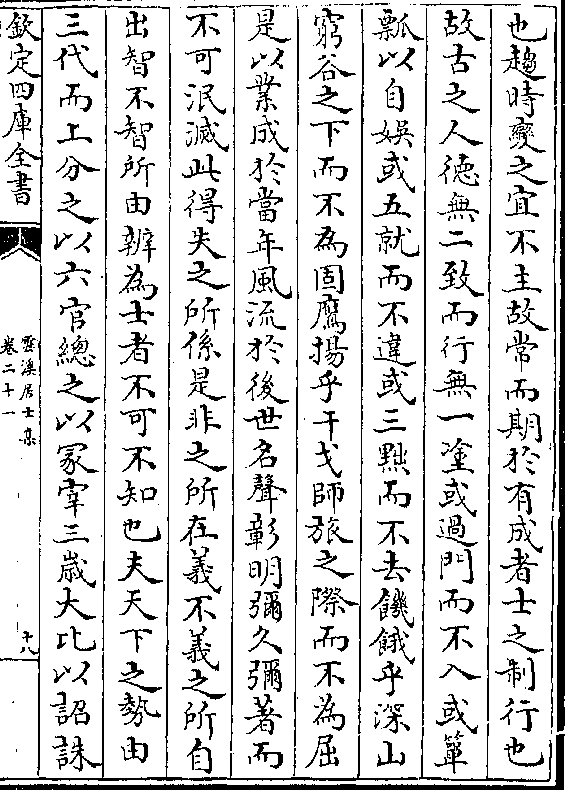 也趨時變之宜不主故常而期於有成者士之制行也
故古之人徳無二致而行無一塗或過門而不入或簞
瓢以自娛或五就而不違或三黜而不去饑餓乎深山
窮谷之下而不為固鷹揚乎干戈師旅之際而不為屈
是以業成於當年風流於後世名聲彰明彌久彌著而
不可泯滅此得失之所係是非之所在義不義之所自
出智不智所由辨為士者不可不知也夫天下之勢由
三代而上分之以六官總之以冢宰三歲大比以詔誅
欽定四庫全書
雲溪居士集
卷二十一
十八